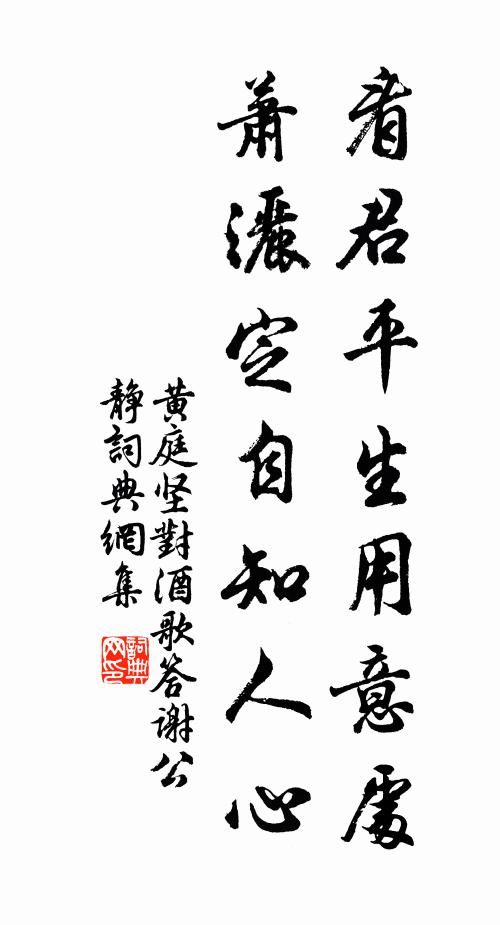 看君平生用意處
蕭灑定自知人心
黄庭坚對酒歌答谢公
靜詞典網集
詞典网印